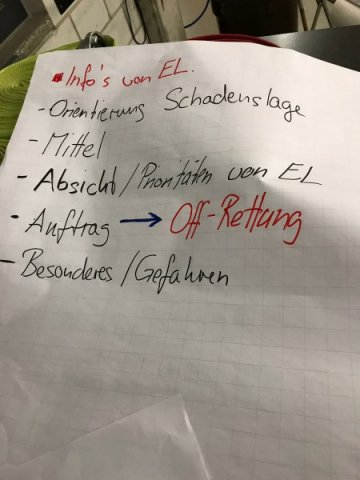 ▪ Info's von EL.
- Orientierung Schadenslage
- Mittel
- Absicht/Prioritäten von EL
- Auftrag → Off-Rettung
- Besonderes/Gefahren